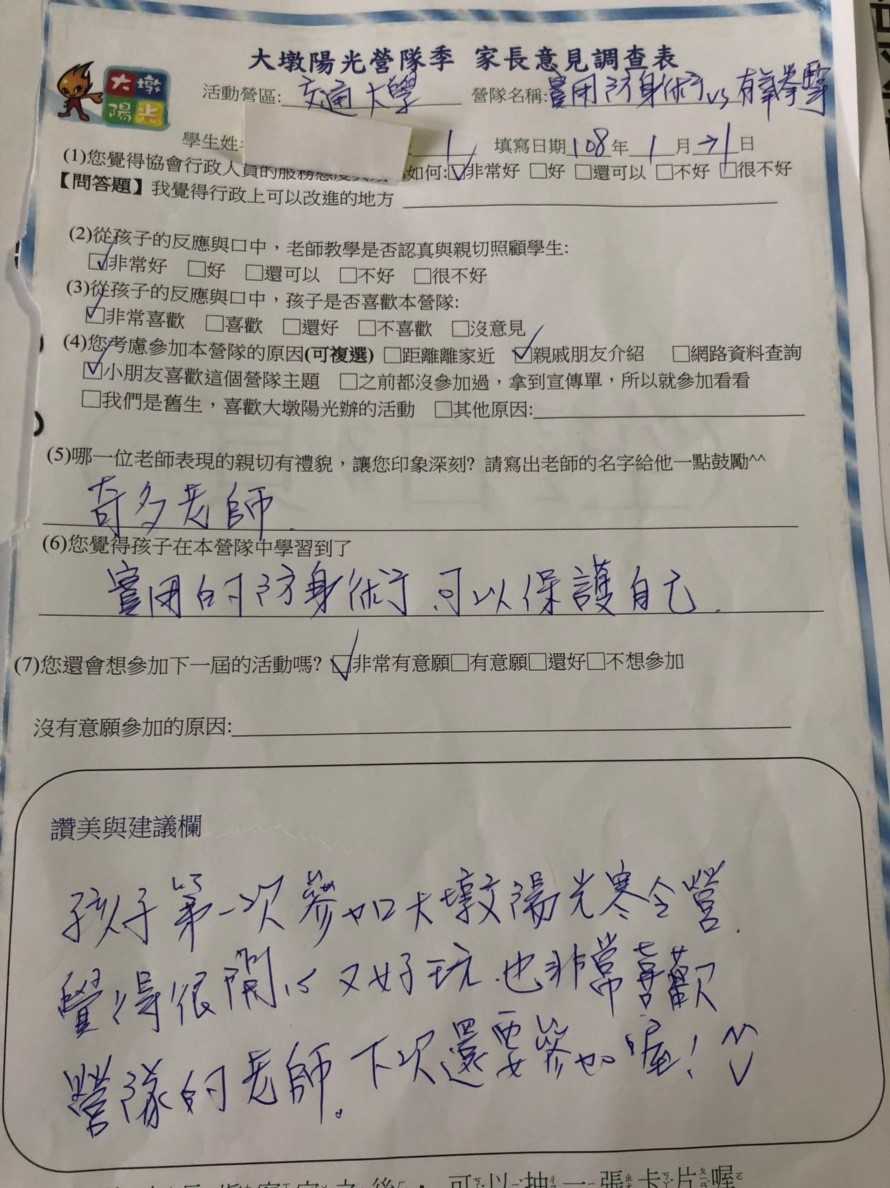 大墩陽光營隊季 家長意見調查表
大墩
陽光
活動營區: 交通大學 營隊名稱: 實用防身術 vs 有氧拳擊
學生姓 填寫日期 108 年 1 月 21 日
(1)您覺得協會行政人員的服務態度 如何:☑非常好 □好 □還可以 □不好 □很不好
【問答題】我覺得行政上可以改進的地方
(2)從孩子的反應與口中，老師教學是否認真與親切照顧學生:
☑非常好 □好 □還可以 □不好 □很不好
(3)從孩子的反應與口中，孩子是否喜歡本營隊:
☑非常喜歡 □喜歡 □還好 □不喜歡 □沒意見
(4)您考慮參加本營隊的原因(可複選) □距離離家近 ☑親戚朋友介紹 □網路資料查詢
☑小朋友喜歡這個營隊主題 □之前都沒參加過，拿到宣傳單，所以就參加看看
□我們是舊生，喜歡大墩陽光辦的活動 □其他原因:
(5)哪一位老師表現的親切有禮貌，讓您印象深刻? 請寫出老師的名字給他一點鼓勵^^
奇多老師.
(6)您覺得孩子在本營隊中學習到了
實用的防身術 可以保護自己.
(7)您還會想參加下一屆的活動嗎? ☑非常有意願□有意願□還好□不想參加
沒有意願參加的原因:
讚美與建議欄
孩子第一次參加大墩陽光寒令營.
覺得很開心又好玩.也非常喜歡
營隊的老師。下次還要參加喔! ^^
可以抽一張卡片喔